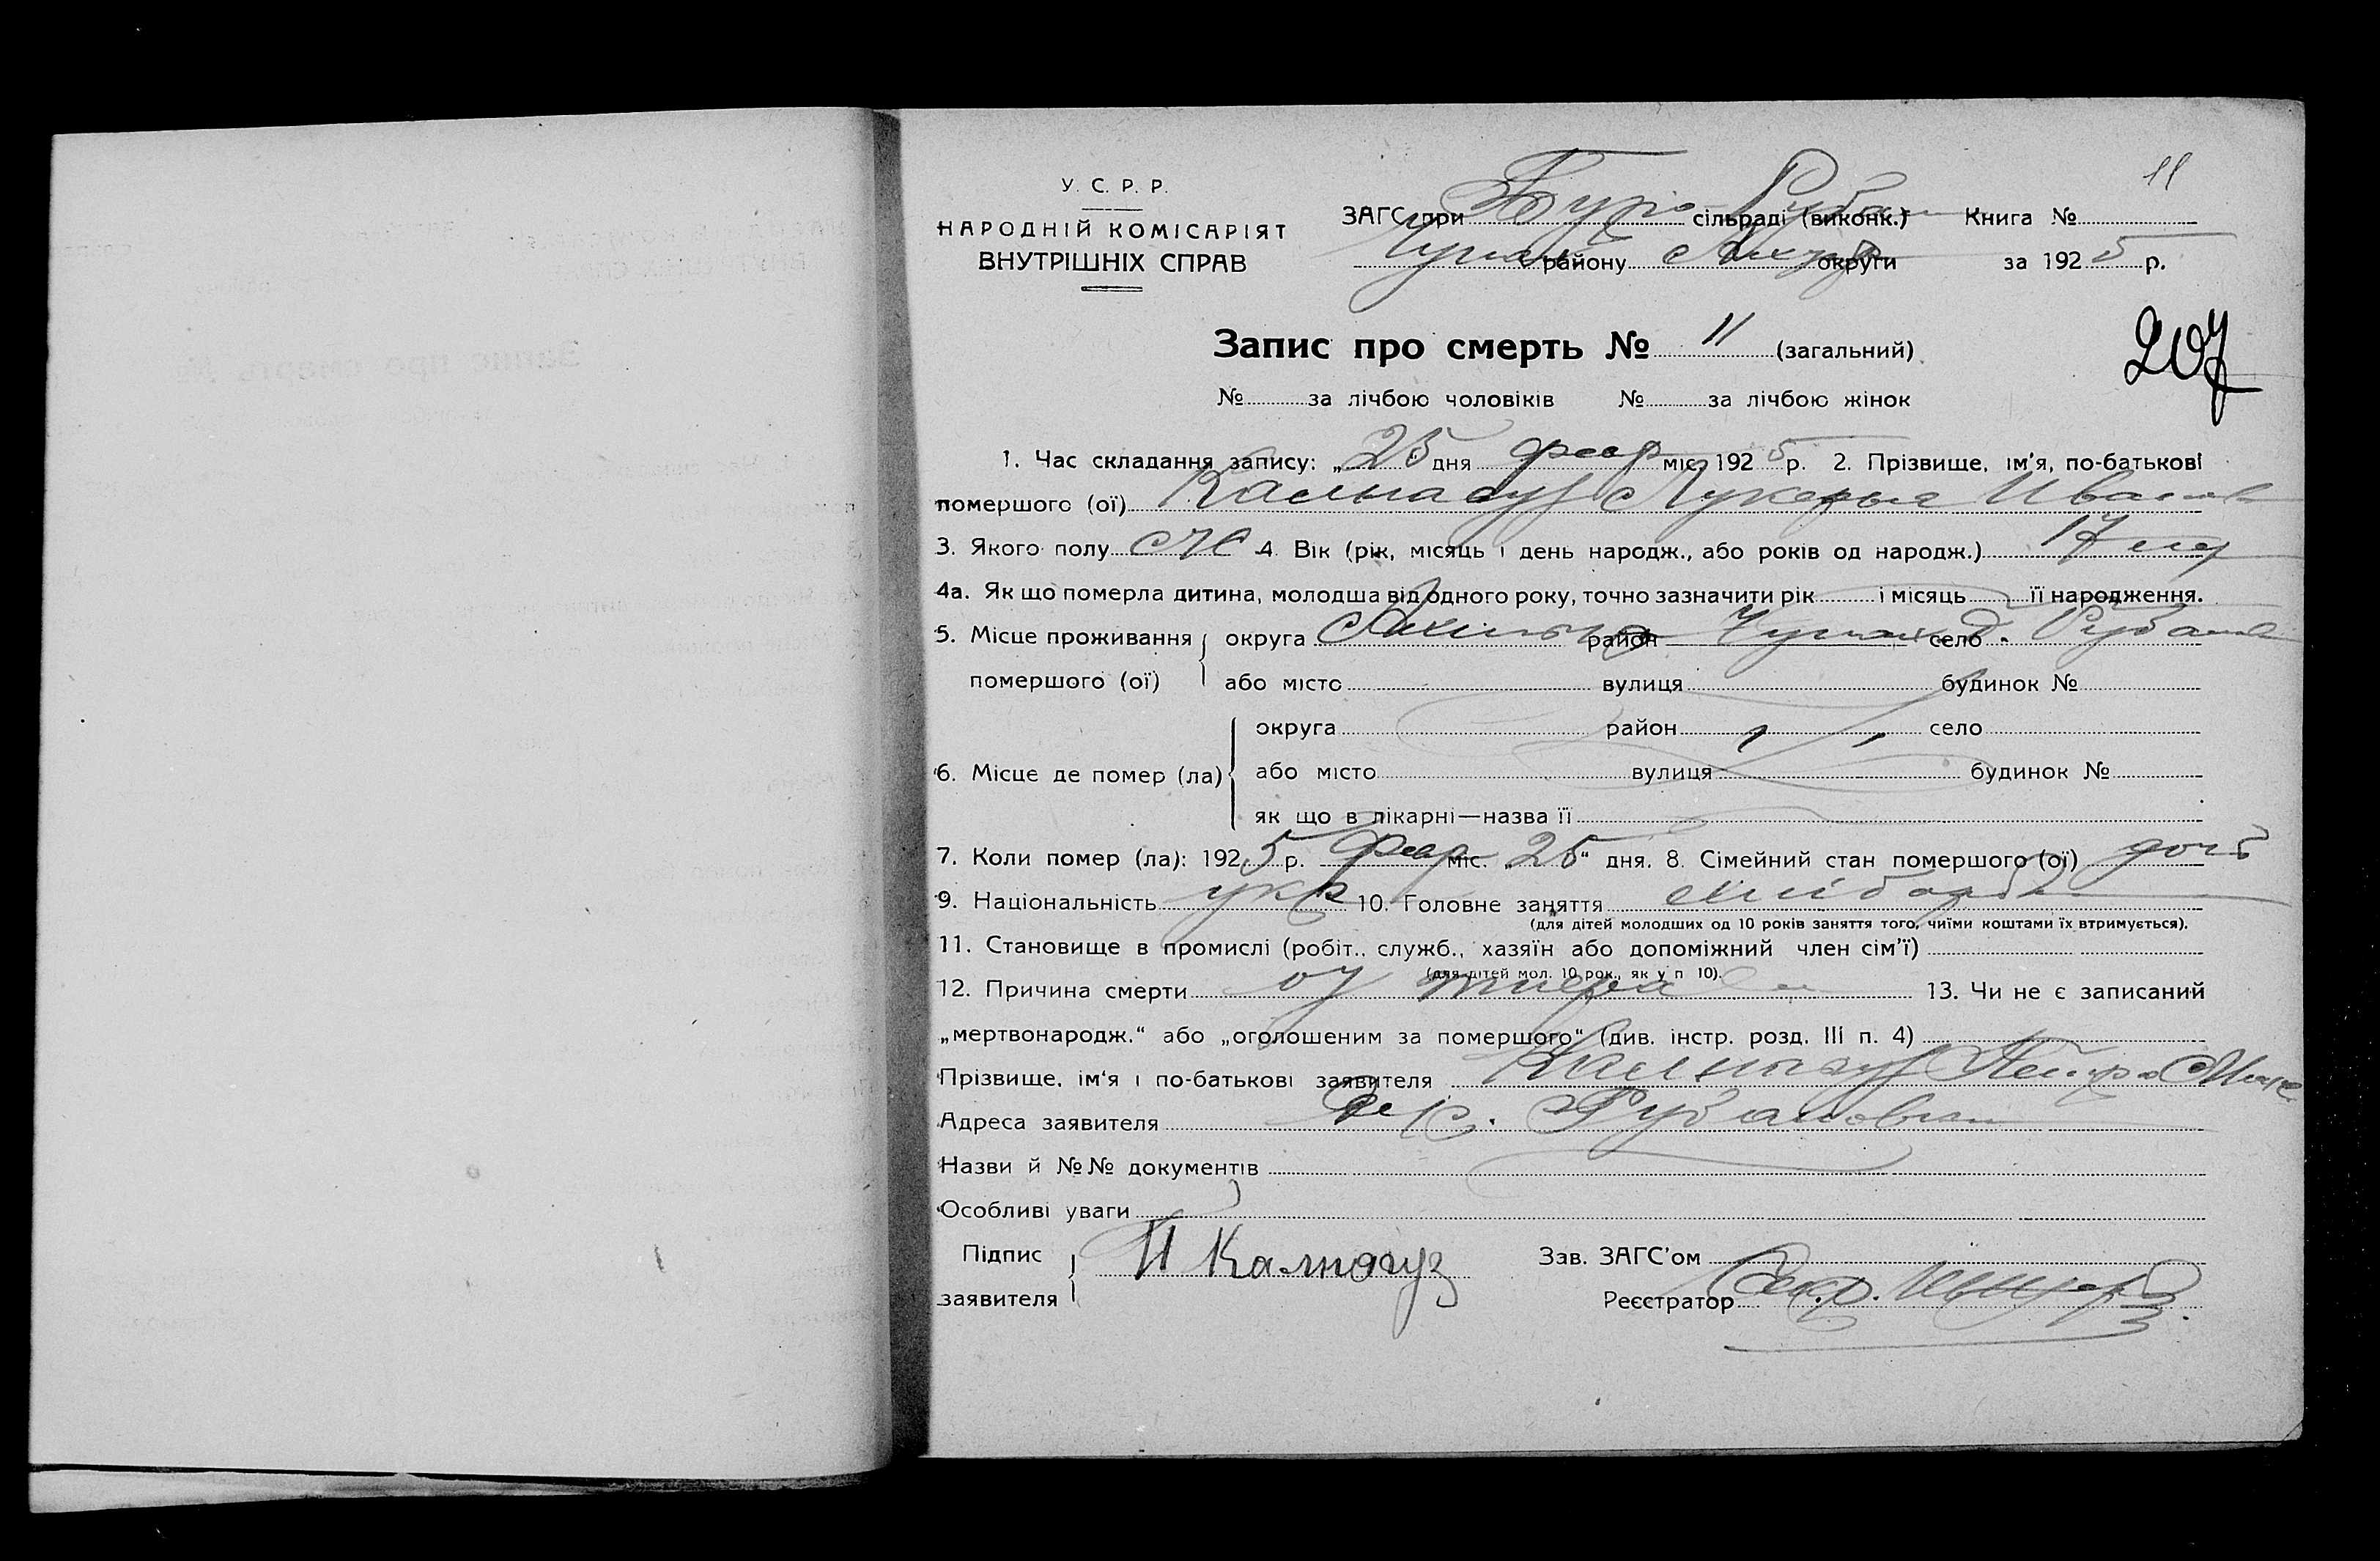 У. С. Р. Р.
НАРОДНІЙ КОМІСАРІЯТ
ВНУТРІШНІХ СПРАВ
11
ЗАГС при Буро- сільраді (виконк.) Книга №
району округи за 1925 р.
Запис про смерть № 11 (загальний)
207
№ за лічбою чоловіків № за лічбою жінок
1. Час складання запису: „25 дня февр міс. 1925 р. 2. Прізвище, ім'я, по-батькові
помершого (ої) Калногуз Лукерья Иванов
3. Якого полу Ж 4. Вік (рік, місяць і день народж., або років од народж.) 17 лет
4а. Як що померла дитина, молодша від одного року, точно зазначити рік і місяць її народження.
5. Місце проживання округа район село
помершого (ої) або місто вулиця будинок №
округа район село
6. Місце де помер (ла) або місто вулиця будинок №
як що в лікарні—назва її
7. Коли помер (ла): 1925 р. Февр міс. „25" дня. 8. Сімейний стан помершого (ої) дочь
9. Національність укр 10. Головне заняття хлібороб
(для дітей молодших од 10 років заняття того, чиїми коштами їх втримується).
11. Становище в промислі (робіт., служб., хазяїн або допоміжний член сім'ї)
(для дітей мол. 10 рок., як у п 10).
12. Причина смерти от тифа 13. Чи не є записаний
„мертвонародж." або „оголошеним за помершого" (див. інстр. розд. III п. 4)
Прізвище, ім'я і по-батькові заявителя Калногуз Петро
Адреса заявителя
Назви й №№ документів
Особливі уваги
Підпис И Калногуз Зав. ЗАГС'ом
заявителя Реєстратор Секр.